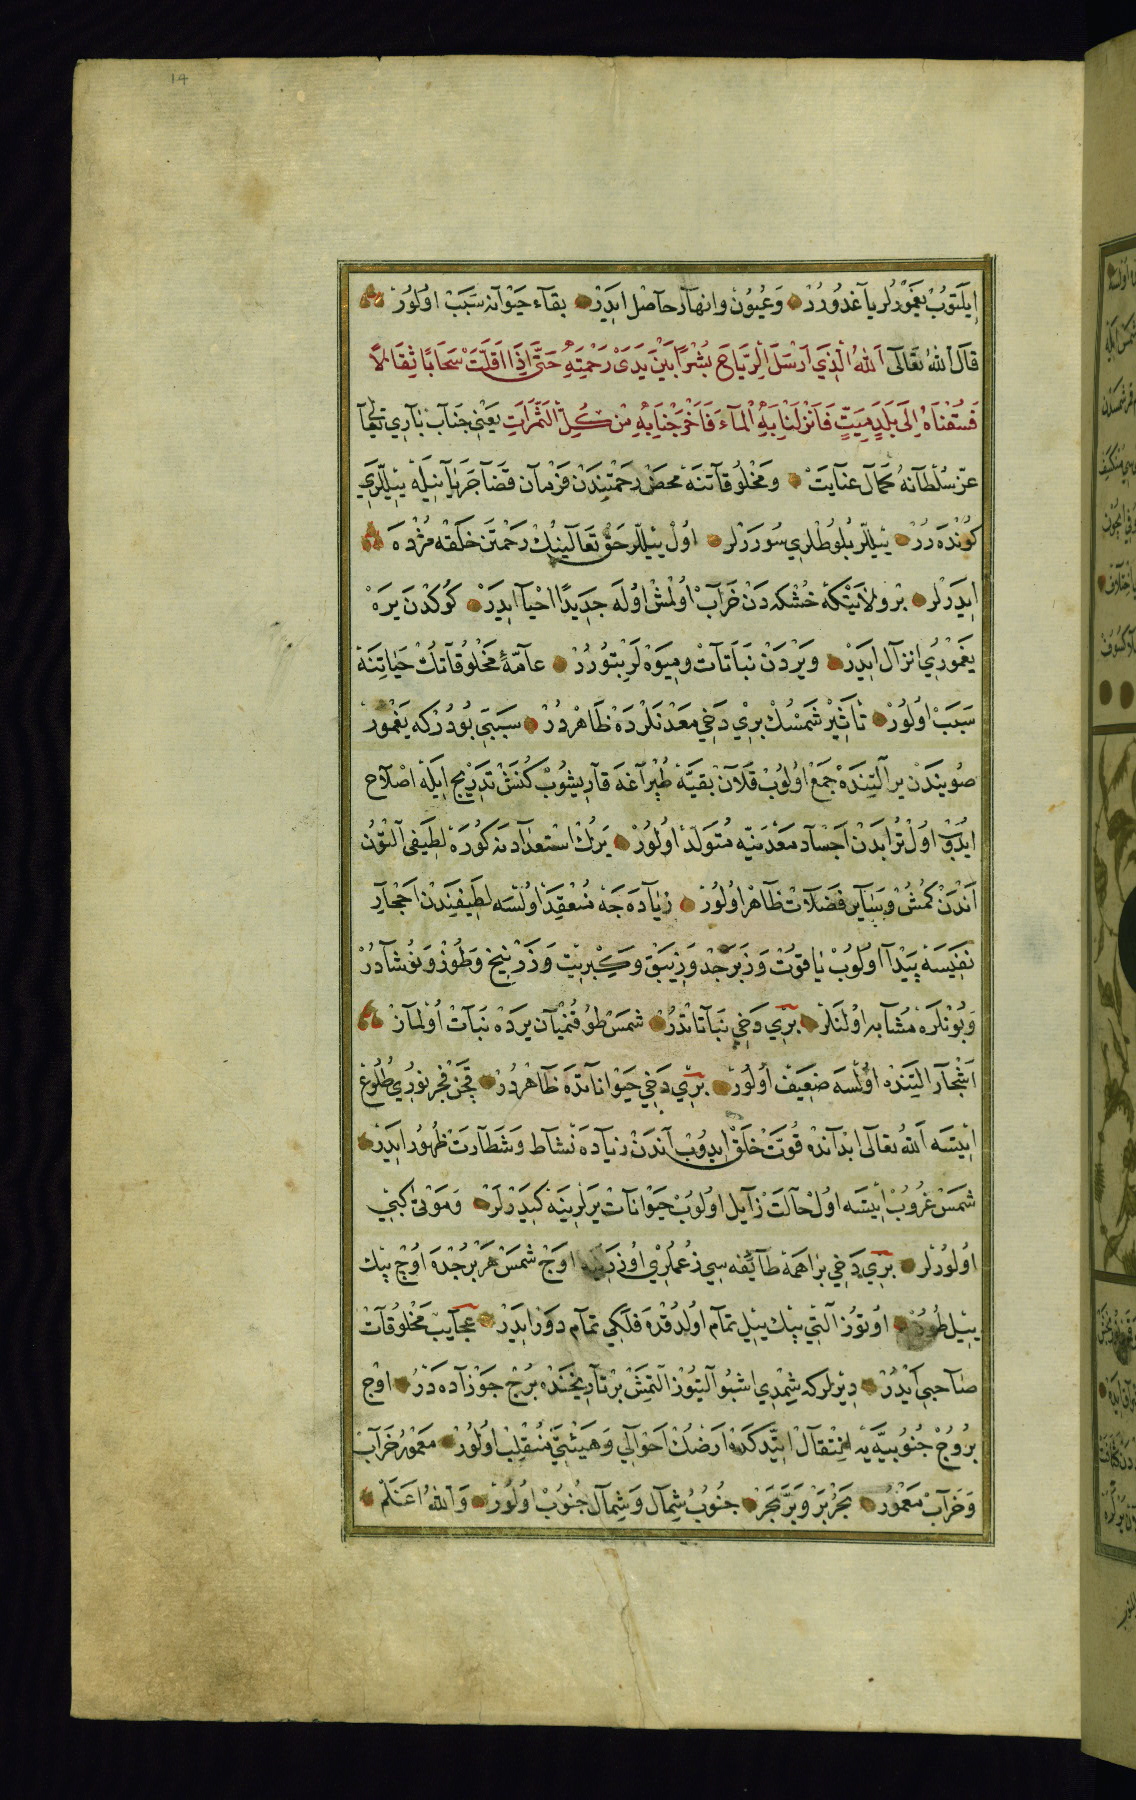 ١٤
إيلتوب يغمورلر ياغدورر وعيون وانهار حاصل ايدر بقاء حيوانه سبب اولور
قال الله تعالى الله الذي ارسل الرياح بشرا بين يدى رحمته حتى اذا اقلت سحابا ثقالا
فسقناه الى بلد ميت فانزلنا به الماء فاخرجنا به من كل الثمرات يعنى جناب بارى تعالى
عز سلطانه كمال عنايت ومخلوقاتنه محض رحمتندن فرمان قضا جريانيله ييللرى
كوندرر ييللر بلوطلرى سوررلر اول ييللر حق تعالينك رحمتن خلقه مژده
ايدرلر بر ولايتكه خشكدن خراب اولمش اوله جديدا احيا ايدر كوكدن يره
يغمورى انزال ايدر ويردن نباتات وميوه لر بتورر عامة مخلوقاتك حياتنه
سبب اولور تأثير شمسك برى دخى معدنلرده ظاهر در سببى بودر كه يغمور
صويندن ير التنده جمع اولوب قلان بقيه طپراغه قاريشوب كنش تدريج ايله اصلاح
ايدوب اول ترابدن اجساد معدنيه متولد اولور يرك استعدادنه كوره لطيفى التون
اندن كمش وساير فضلات ظاهر اولور زياده جه منعقد اولسه لطيفندن احجار
نفيسه پيدا اولوب ياقوت وزبرجد وزيبق وكبريت وزرنيخ وطوز ونوشادر
وبونلره مشابه اولنلر برى دخى نباتاتدر شمس طوقنميان يرده نبات اولماز
اشجار التنده اولسه ضعيف اولور برى دخى حيواناتده ظاهر در قچن فجر نورى طلوع
ايتسه الله تعالى ابداننده قوت خلق ايدوب اندن زياده نشاط وشطارت ظهور ايدر
شمس غروب ايتسه اول حالت زايل اولوب حيوانات يرلرينه كيدرلر وموتى كبى
اولورلر برى دخى براهمه طايفه سى زعملرى اوزرينه اوج شمس هر برجده اوچ بيك
ييل طورر اوتوز التى بيك ييل تمام اولدقده فلكى تمام دور ايدر عجايب مخلوقات
صاحبى ايدر ديرلر كه شمدى اشبو التيوز التمش بر تاريخنده برج جوزاده در اوج
بروج جنوبيه يه انتقال ايتدكده ارضك احوالى وهيئتى منقلب اولور معمور خراب
وخراب معمور بحر بر وبر بحر جنوب شمال وشمال جنوب اولور والله اعلم